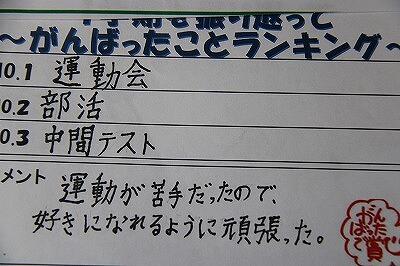 学期を振り返って
～がんばったことランキング～
NO.1 運動会
NO.2 部活
NO.3 中間テスト
メント 運動が苦手だったので、
好きになれるように頑張った。
がん
ばった
で賞